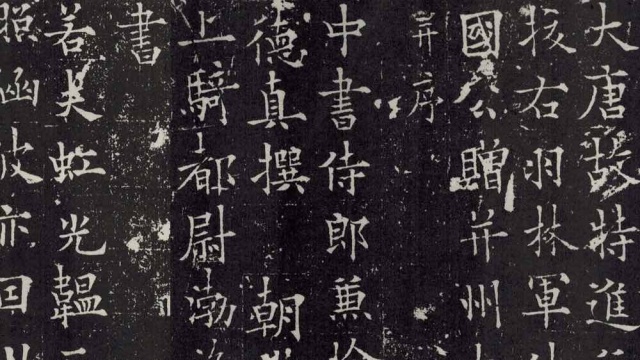 大唐故特進
挍右羽林軍
國公贈并州
并序
中書侍郎兼
德真撰 朝
上騎都尉渤
書
若夫虹光韞
照函亦